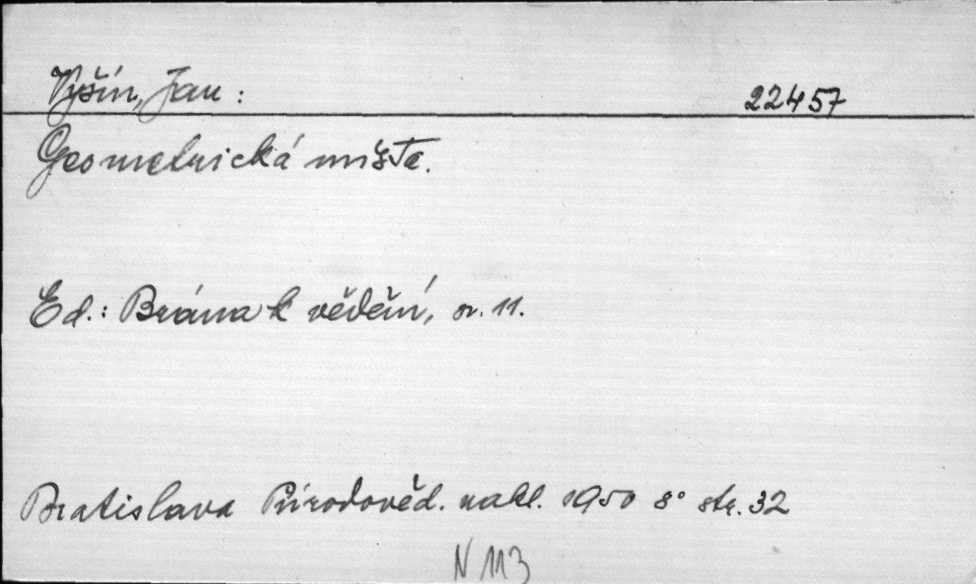 Vyšín, Jan : 22457
Geometrická místa.
Ed.: Brána k vědění, sv. 11.
Bratislava Přírodověd. nakl. 1950 8° str. 32
N 113